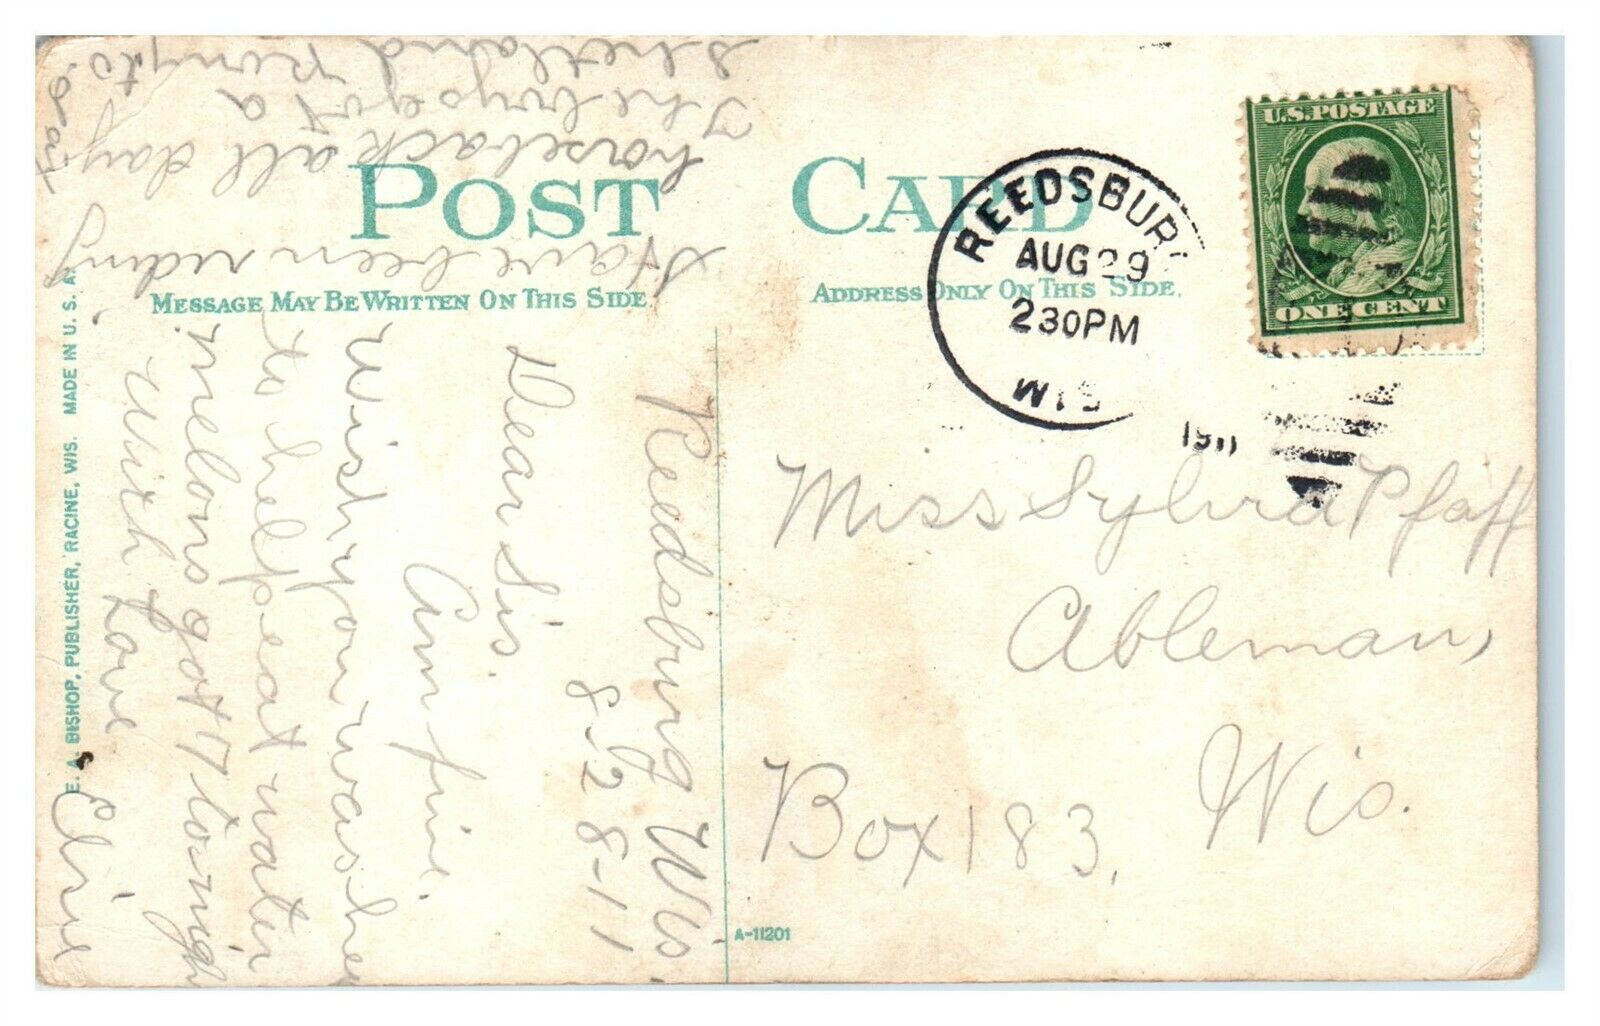 POST CARD
MESSAGE MAY BE WRITTEN ON THIS SIDE.
ADDRESS ONLY ON THIS SIDE.
U.S. POSTAGE
ONE CENT
REEDSBURG
AUG 29
230PM
WIS
1911
Miss Sylvia Pfaff
Ableman,
Wis.
Box 183,
A-11201
E. A. BISHOP, PUBLISHER, RACINE, WIS. MADE IN U. S. A.
Reedsburg Wis.
8-28-11
Dear Sis.
Am fine.
Wish you was here
to help eat water
melons got 7 tonight
With Love
Elsie
Have been riding
horseback all day
The boys got a
Shetland pony to.